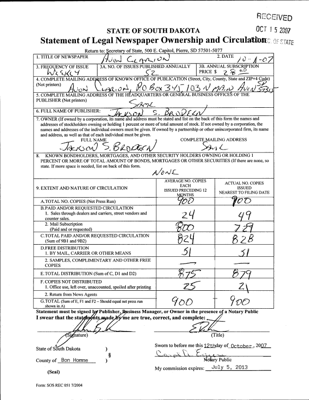 RECEIVED
OCT 15 2007
STATE OF SOUTH DAKOTA
Statement of Legal Newspaper Ownership and Circulation
Return to: Secretary of State, 500 E. Capitol, Pierre, SD 57501-5077
1. TITLE OF NEWSPAPER AVON CLARION 2. DATE 10-1-07
1. FREQUENCY OF ISSUE WEEKLY 3A. NO. OF ISSUES PUBLISHED ANNUALLY 52 3B. ANNUAL SUBSCRIPTION PRICE $
4. COMPLETE MAILING ADDRESS OF KNOWN OFFICE OF PUBLICATION (Street, City, County, State and ZIP+4 Code)
(Not printers) AVON CLARION, PO BOX 345, 103 N MAIN AVON
5. COMPLETE MAILING ADDRESS OF THE HEADQUARTERS OR GENERAL BUSINESS OFFICES OF THE
PUBLISHER (Not printers) SAME
6. FULL NAME OF PUBLISHER: JACKSON S. BRODEEN
7. OWNER (If owned by a corporation, its name and address must be stated and list on the back of this form the names and
addresses of stockholders owning or holding 1 percent or more of total amount of stock. If not owned by a corporation, the
names and addresses of the individual owners must be given. If owned by a partnership or other unincorporated firm, its name
and address, as well as that of each individual must be given.
FULL NAME COMPLETE MAILING ADDRESS
JACKSON S. BRODEEN SAME
8. KNOWN BONDHOLDERS, MORTGAGES, AND OTHER SECURITY HOLDERS OWNING OR HOLDING 1
PERCENT OR MORE OF TOTAL AMOUNT OF BONDS, MORTGAGES OR OTHER SECURITIES (If there are none, so
state. If more space is needed, list on back of this form.
NONE
9. EXTENT AND NATURE OF CIRCULATION
AVERAGE NO. COPIES EACH ISSUED PRECEDING 12 MONTHS
ACTUAL NO. COPIES ISSUED NEAREST TO FILING DATE
A. TOTAL NO. COPIES (Net Press Run) 900 900
B. PAID AND/OR REQUESTED CIRCULATION
1. Sales through dealers and carriers, street vendors and
counter sales. 24 49
2. Mail Subscription
(Paid and or requested) 800 779
C. TOTAL PAID AND/OR REQUESTED CIRCULATION
(Sum of 9B1 and 9B2) 824 828
D. FREE DISTRIBUTION
1. BY MAIL, CARRIER OR OTHER MEANS 51 51
2. SAMPLES, COMPLIMENTARY AND OTHER FREE
COPIES
E. TOTAL DISTRIBUTION (Sum of C, D1 and D2) 875 879
F. COPIES NOT DISTRIBUTED
1. Office use, left over, unaccounted, spoiled after printing 25 21
2. Return from News Agents
G. TOTAL (Sum of E, F1 and F2 - Should equal net press run
shown in A) 900 900
Statement must be signed by Publisher, Business Manager, or Owner in the presence of a Notary Public
I swear that the statements made by me are true, correct, and complete:
(Signature) (Title)
State of South Dakota )
§
County of Bon Homme )
(Seal)
Sworn to before me this 12th day of October, 2007
Notary Public
My commission expires: July 5, 2013
Form: SOS REC 051 7/2004